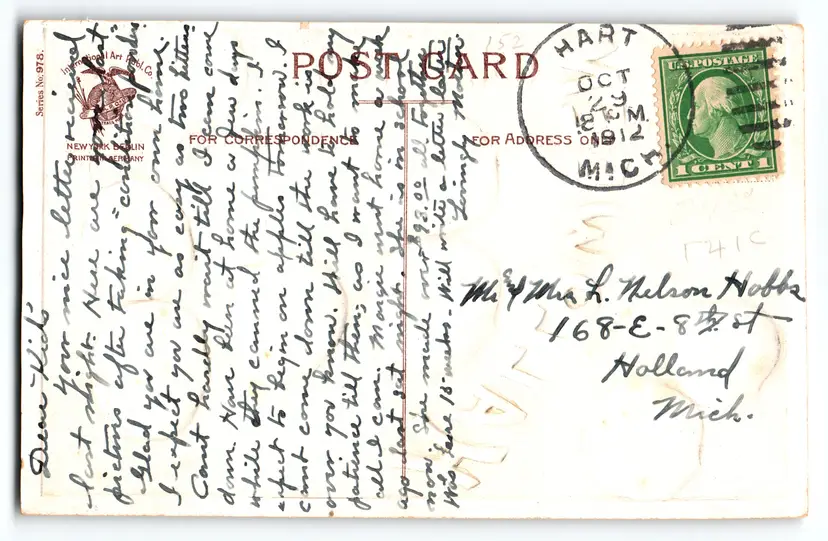 Series No. 978.
International Art Publ. Co.
NEW YORK BERLIN
PRINTED IN GERMANY
POST CARD
FOR CORRESPONDENCE
FOR ADDRESS ONLY
152
HART
OCT
29
12 M
1912
MICH.
U.S. POSTAGE
1 CENT 1
Mr & Mrs L. Nelson Hobbs
168-E-8th St
Holland
Mich.
Dear "Kids"
Your nice letter received
last night. Here are "our last"
pictures after taking "condition powders"
Glad you are in your own home.
I expect you are as cozy as two kittens
Can't hardly wait till I can come
down. Have been at home a few days
while they canned the pumpkins. I
expect to begin on apples tomorrow. I
can't come down till the work is
over you know. Will have to hold my
patience till then, as I want to make
all I can. Margie went home a week
ago last sat night. She is in school
now. She made over $93.00 all together
Was here 18-weeks- Will write a letter later
Lovingly